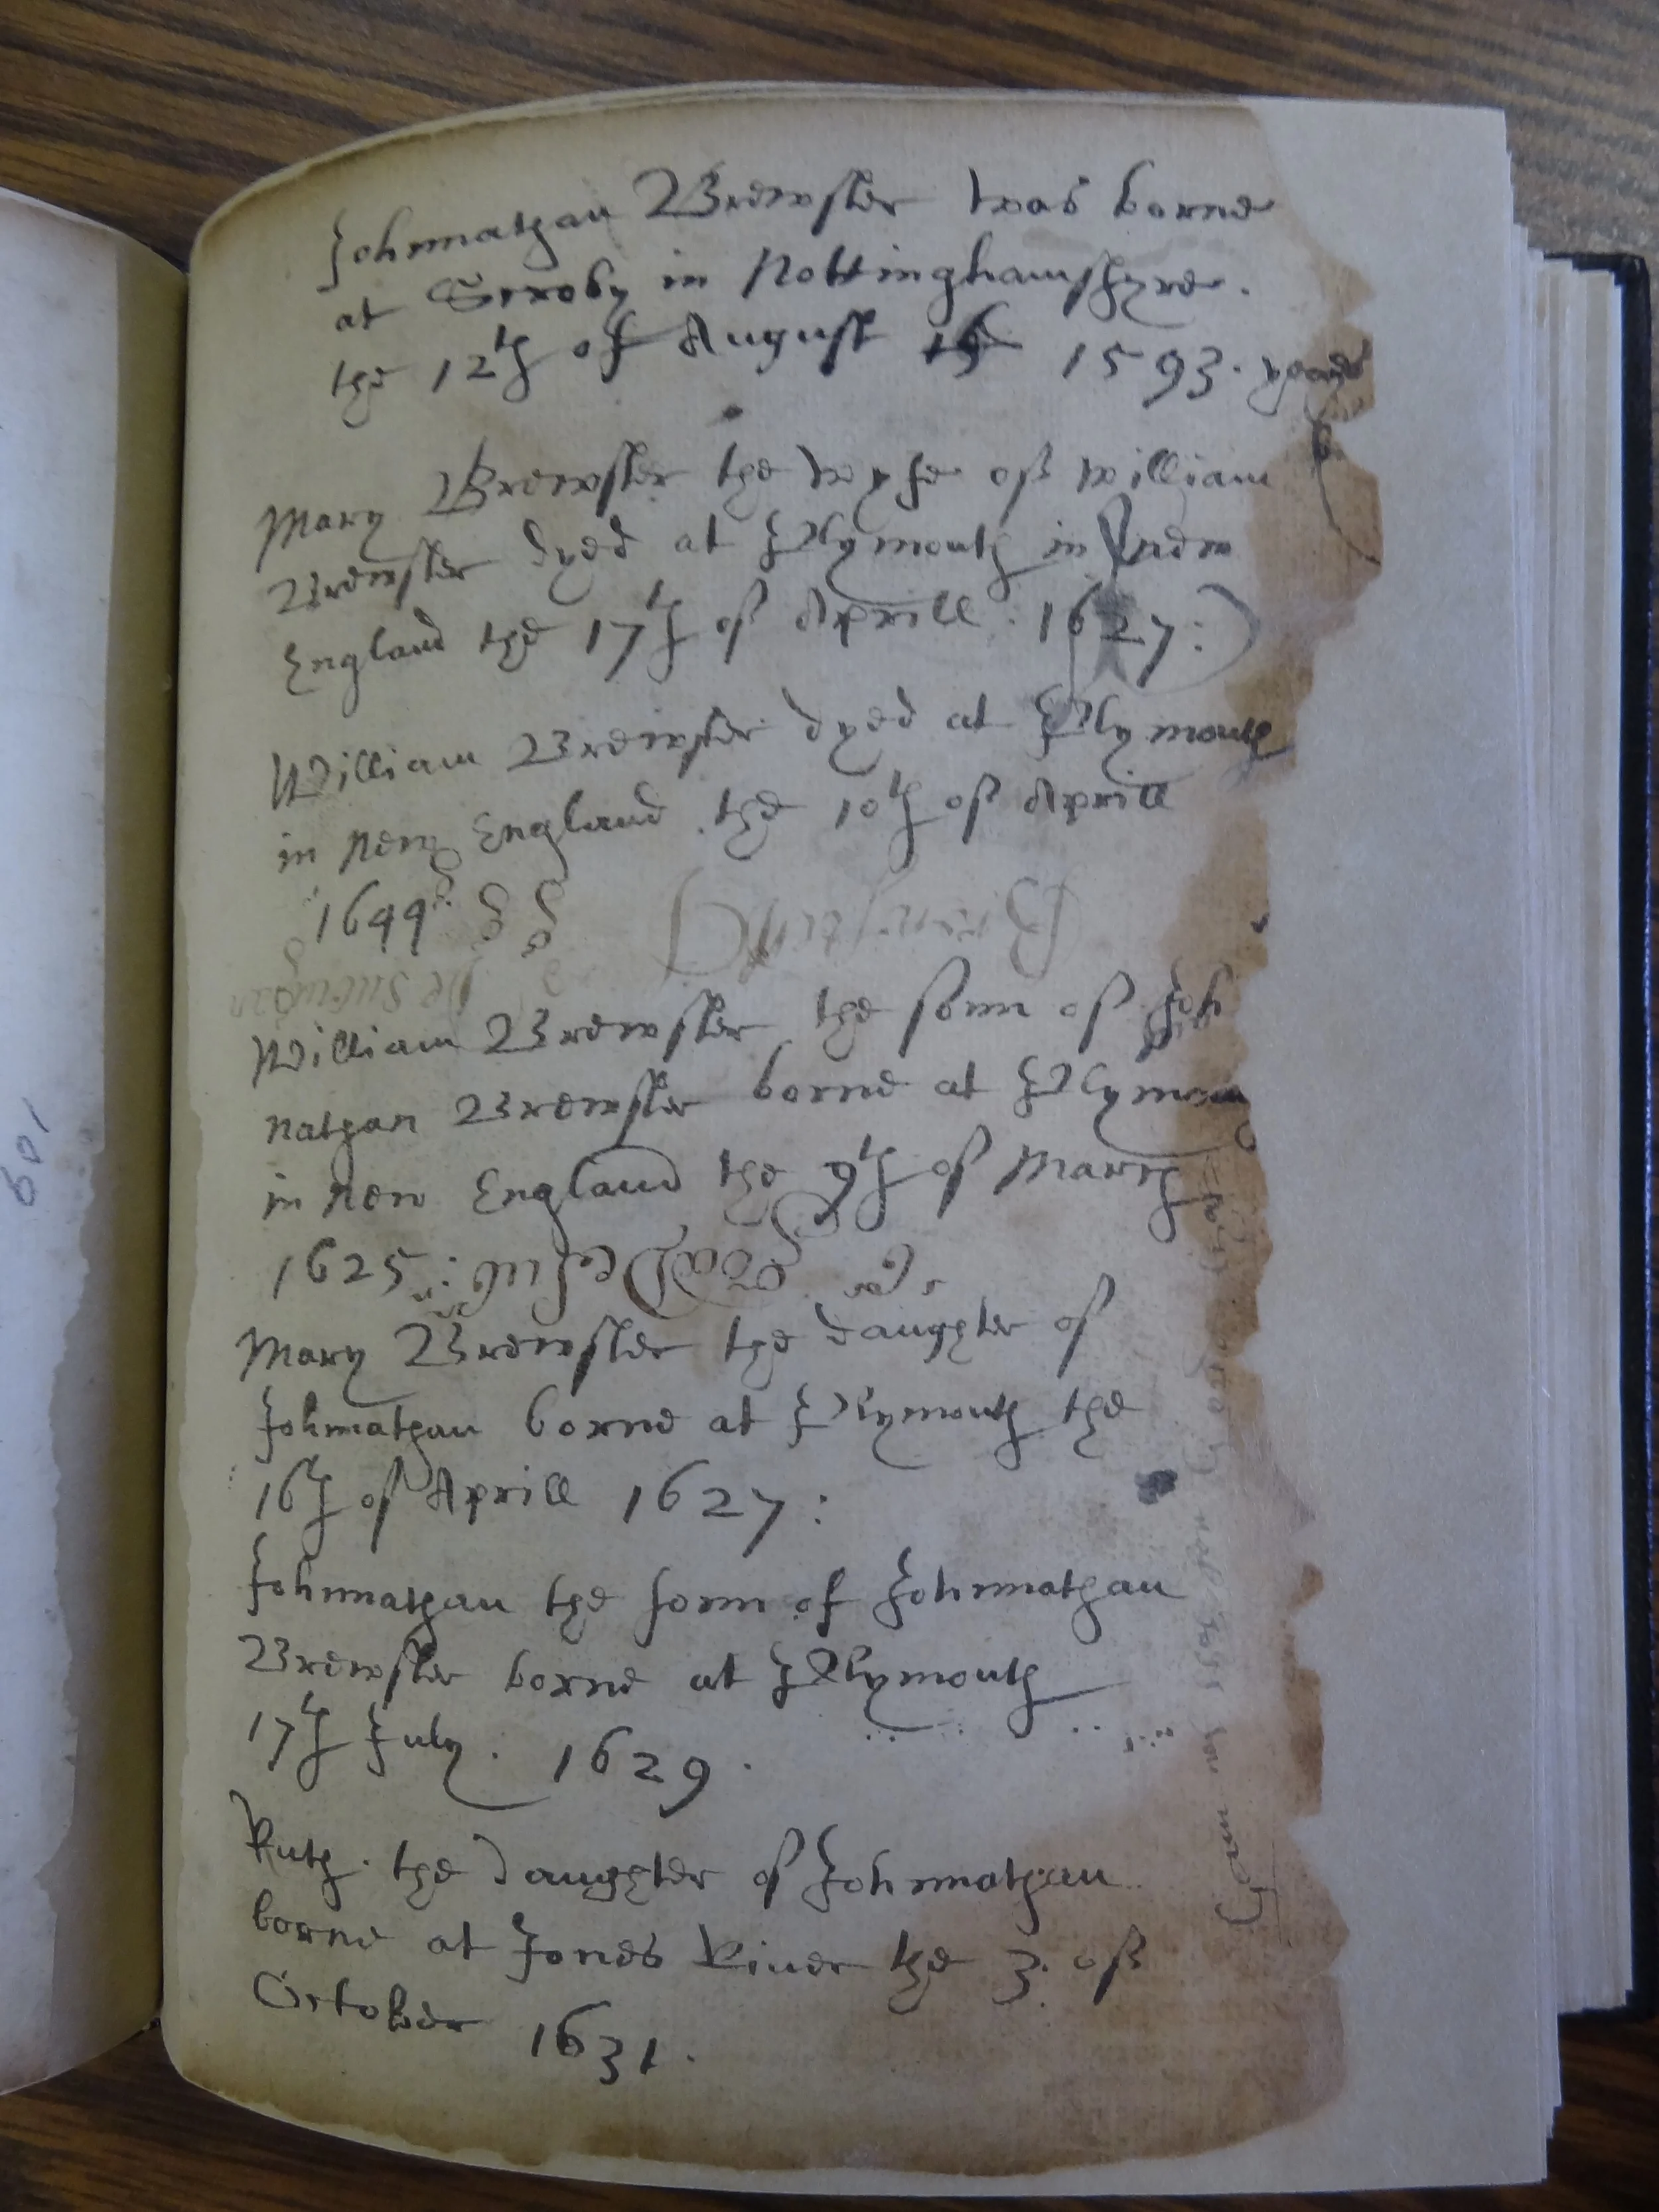 Johnnathan Brewster was borne
at Scroby in Nottinghamshyre.
the 12th of August 1593. yeare
Mary Brewster the wyfe of William
Brewster dyed at Plymouth in new
England the 17th of Aprill. 1627:
William Brewster dyed at Plymouth
in new England. the 10th of Aprill
1644
William Brewster the sonn of Joh
nathan Brewster borne at Plymou
in new England the 9th of March
1625:
Mary Brewster the daughter of
Johnnathan borne at Plymouth the
16th of Aprill 1627:
Johnnathan the sonn of Johnnathan
Brewster borne at Plymouth
17th July. 1629.
Ruth. the Daughter of Johnnathan
borne at Jones River the 3. of
October 1631.